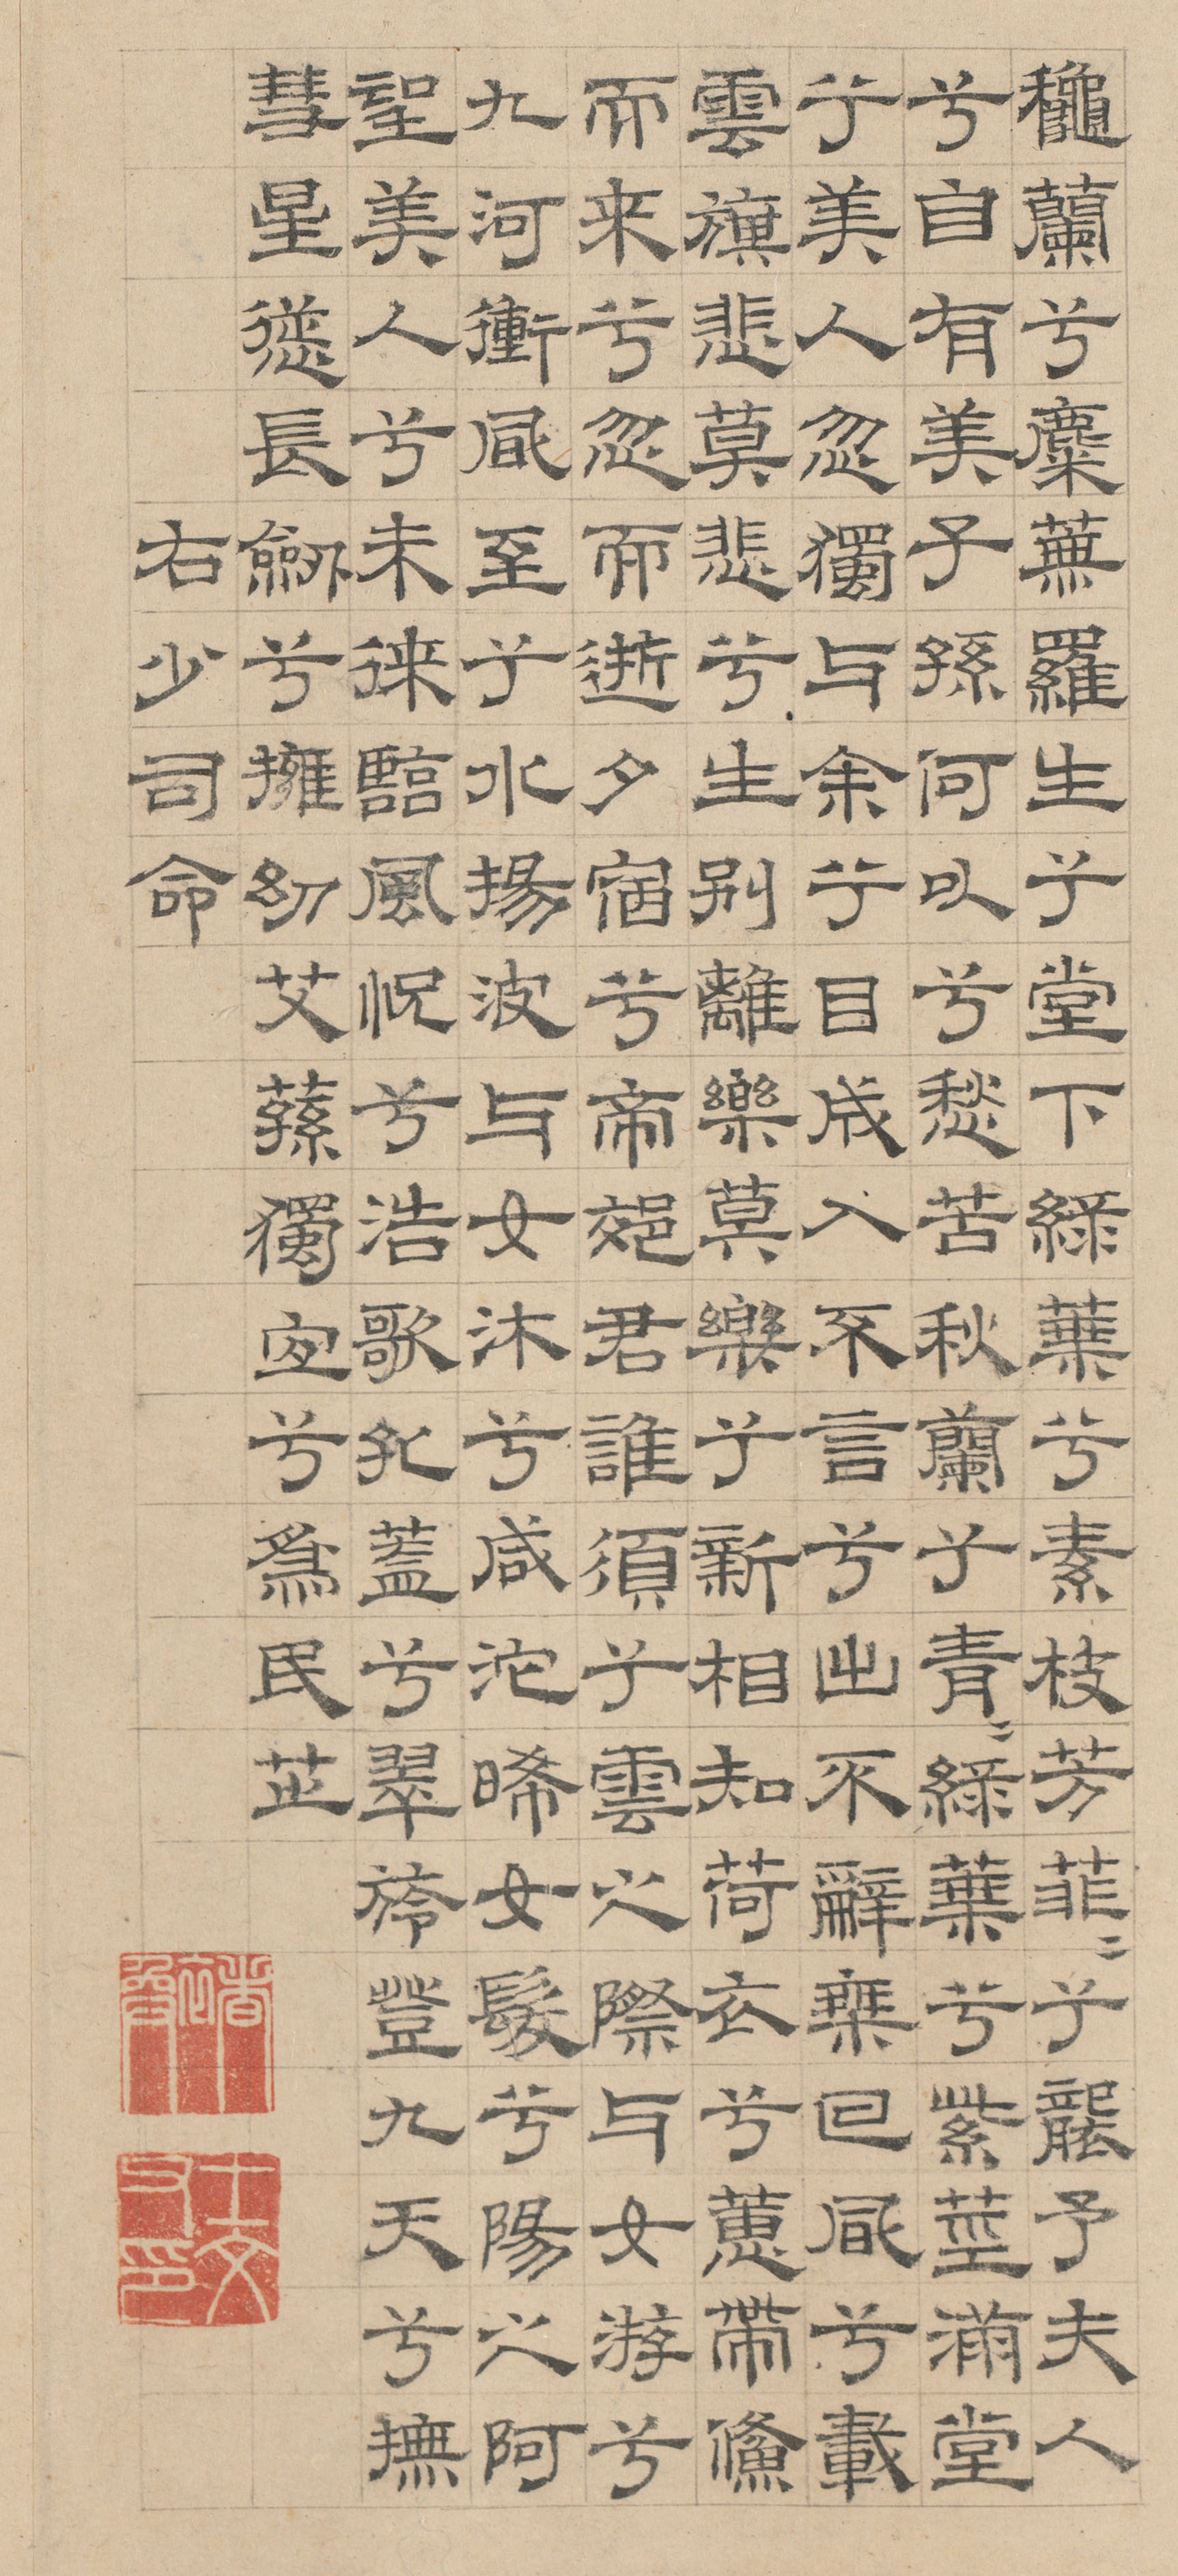 穐蘭兮麋蕪羅生兮堂下綠葉兮素枝芳菲〻兮襲予夫人
兮自有美子孫何以兮愁苦秋蘭兮青〻綠葉兮紫莖滿堂
兮美人忽獨与余兮目成入不言兮出不辭乘回風兮載
雲旗悲莫悲兮生别離樂莫樂兮新相知荷衣兮蕙帶儵
而来兮忽而逝夕宿兮帝郊君誰須兮雲之際与女游兮
九河衝風至兮水揚波与女沐兮咸池晞女髮兮陽之阿
望美人兮未徠臨風怳兮浩歌孔蓋兮翠旍登九天兮撫
彗星慫長劒兮擁幼艾蓀獨宜兮為民芷
右少司命